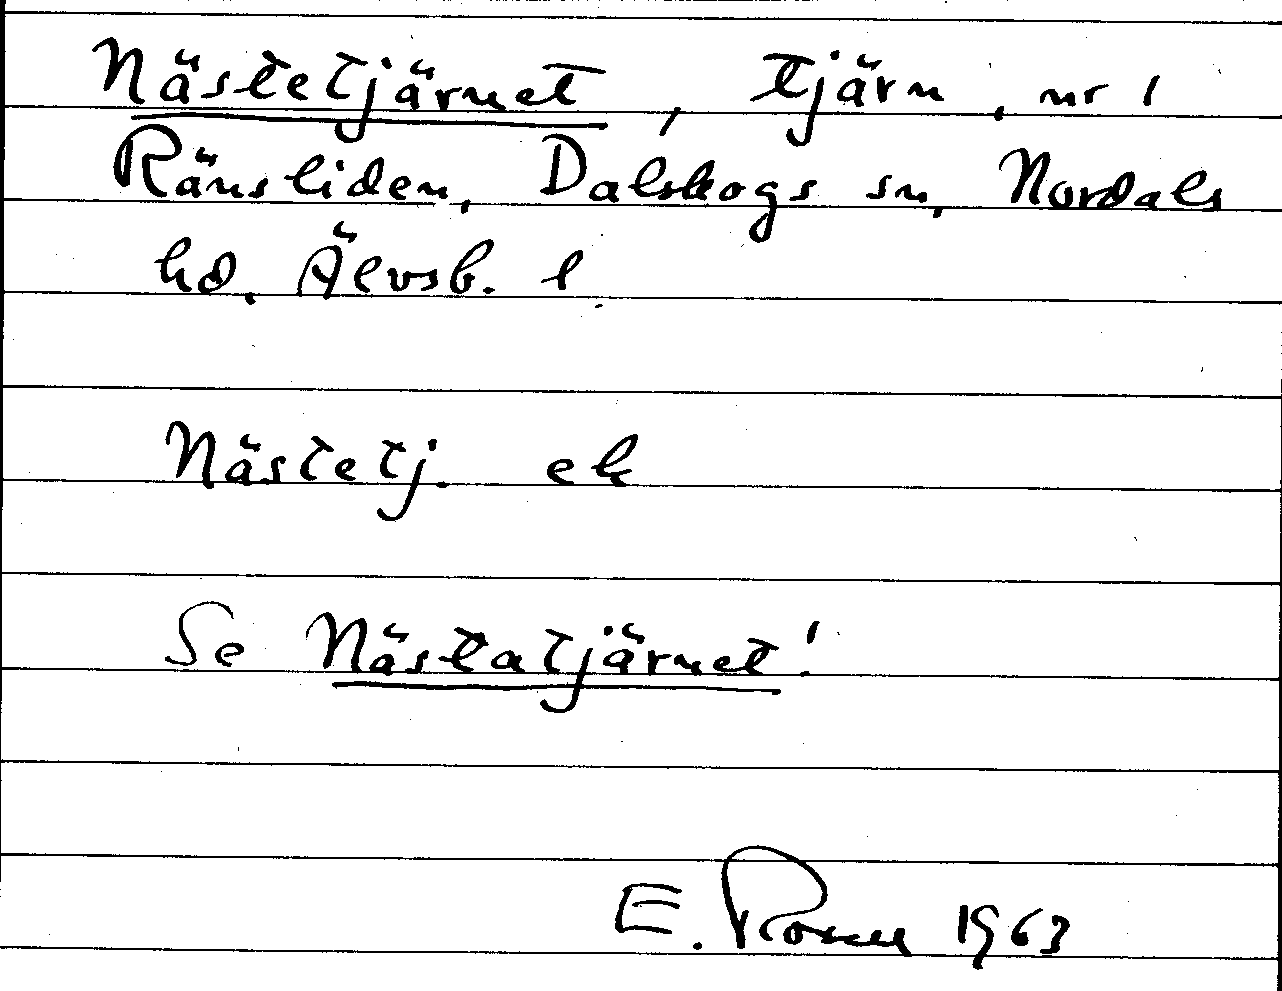 Nästetjärnet, tjärn, nr 1
Ränsliden, Dalskogs sn, Nordals
hd. Älvsb. l.
Nästetj. ek
Se Nästatjärnet!
E. Rosell 1963